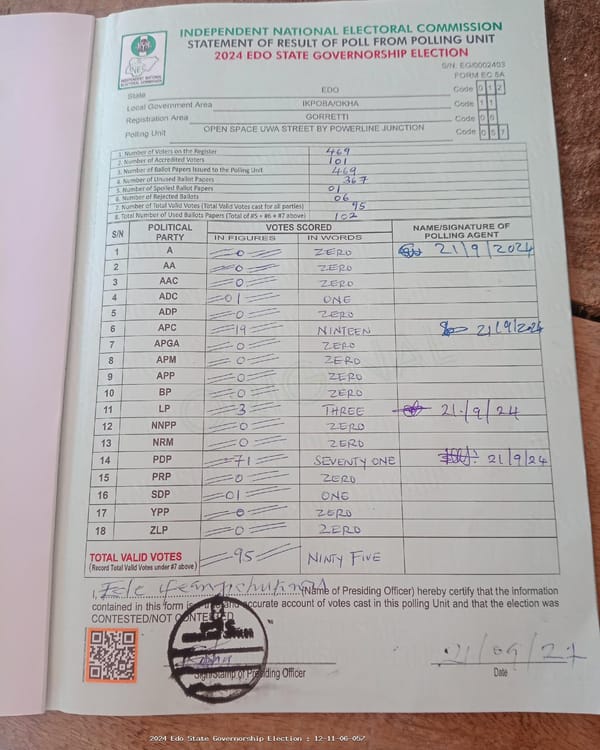 INDEPENDENT NATIONAL ELECTORAL COMMISSION
STATEMENT OF RESULT OF POLL FROM POLLING UNIT
2024 EDO STATE GOVERNORSHIP ELECTION
S/N: EG/0002403
FORM EC 8A
INDEPENDENT NATIONAL ELECTORAL COMMISSION
State EDO Code 0 1 2
Local Government Area IKPOBA/OKHA Code 1 1
Registration Area GORRETTI Code 0 6
Polling Unit OPEN SPACE UWA STREET BY POWERLINE JUNCTION Code 0 5 7
1. Number of Voters on the Register 469
2. Number of Accredited Voters 101
3. Number of Ballot Papers Issued to the Polling Unit 469
4. Number of Unused Ballot Papers 367
5. Number of Spoiled Ballot Papers 01
6. Number of Rejected Ballots 06
7. Number of Total Valid Votes (Total Valid Votes cast for all parties) 95
8. Total Number of Used Ballots Papers (Total of #5 + #6 + #7 above) 102
S/N POLITICAL PARTY VOTES SCORED NAME/SIGNATURE OF POLLING AGENT
IN FIGURES IN WORDS
1 A 0 ZERO 21/9/2024
2 AA 0 ZERO
3 AAC 0 ZERO
4 ADC 01 ONE
5 ADP 0 ZERO
6 APC 19 NINTEEN 21/9/24
7 APGA 0 ZERO
8 APM 0 ZERO
9 APP 0 ZERO
10 BP 0 ZERO
11 LP 3 THREE 21/9/24
12 NNPP 0 ZERO
13 NRM 0 ZERO
14 PDP 71 SEVENTY ONE 21/9/24
15 PRP 0 ZERO
16 SDP 01 ONE
17 YPP 0 ZERO
18 ZLP 0 ZERO
TOTAL VALID VOTES 95 NINTY FIVE
(Record Total Valid Votes under #7 above)
I, (Name of Presiding Officer) hereby certify that the information
contained in this form is and accurate account of votes cast in this polling Unit and that the election was
CONTESTED/NOT CONTESTED
21/09/24
Sign/Stamp of Presiding Officer Date
2024 Edo State Governorship Election : 12-11-06-057